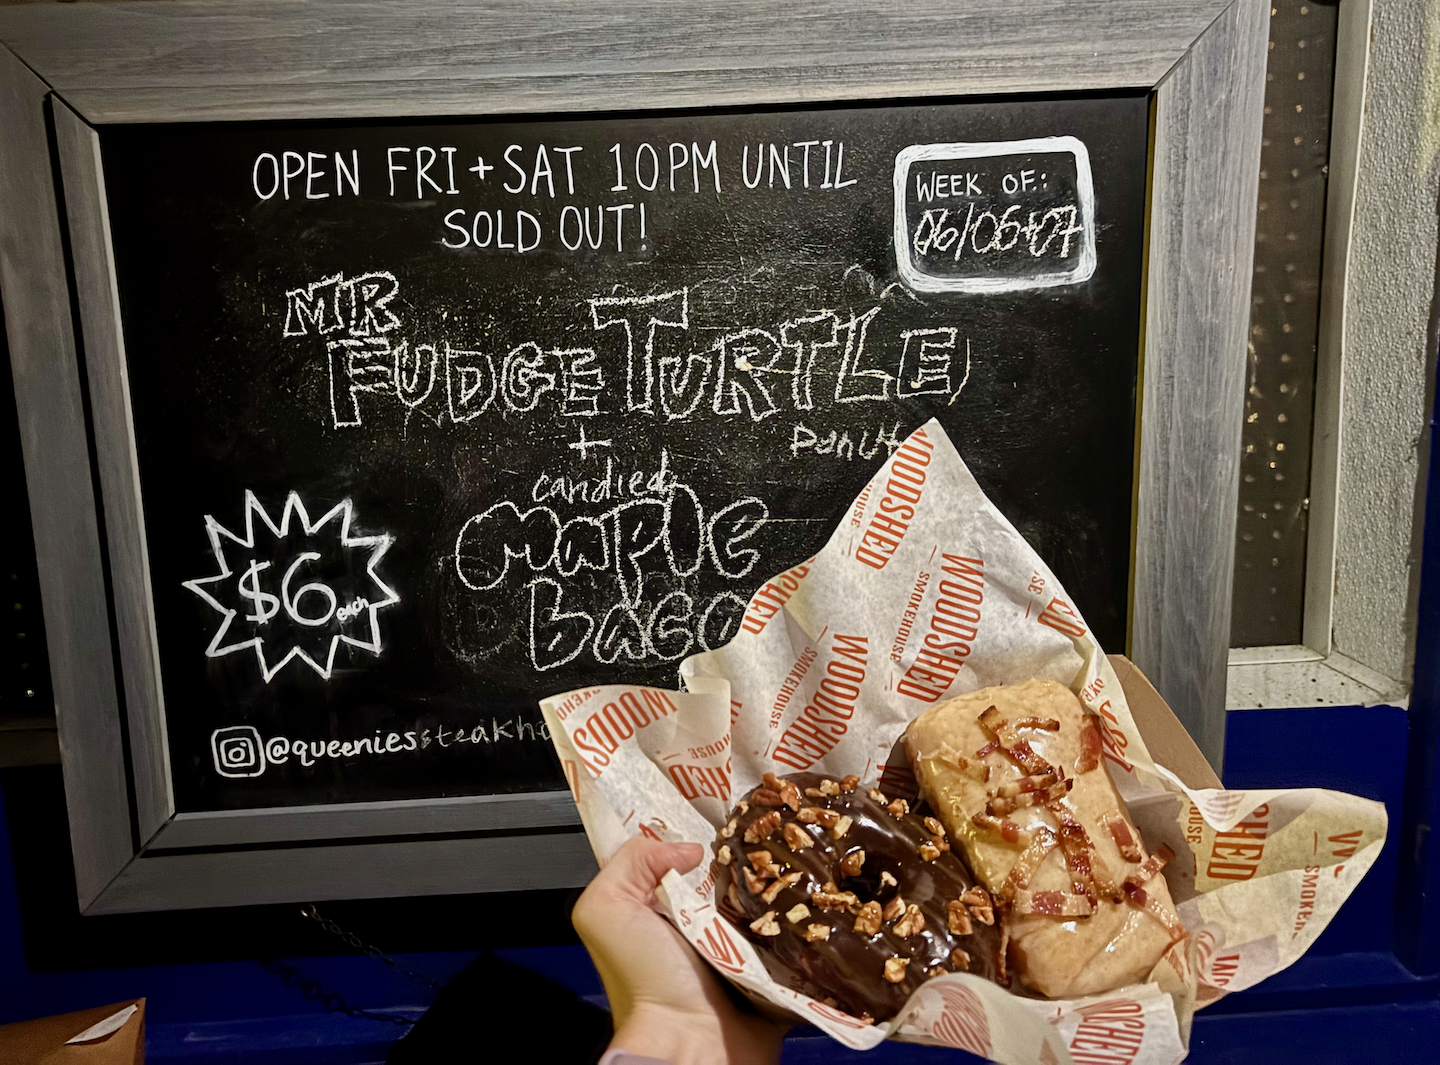 OPEN FRI + SAT 10PM UNTIL
SOLD OUT!
WEEK OF:
06/06+07
MR
FUDGE TURTLE
DONUT
+
candied
Maple
baco
$6 each
@queeniessteakho
WOODSHED
SMOKEHOUSE
WOODSHED
SMOKEHOUSE
WOODSHED
SMOKEHOUSE